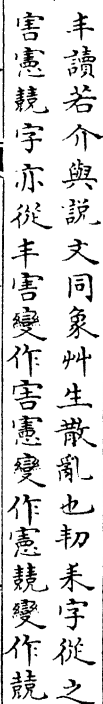 丰讀若介與說文同象艸生散亂也㓞耒字從之
害憲兢字亦從丰害變作害憲變作憲兢變作兢